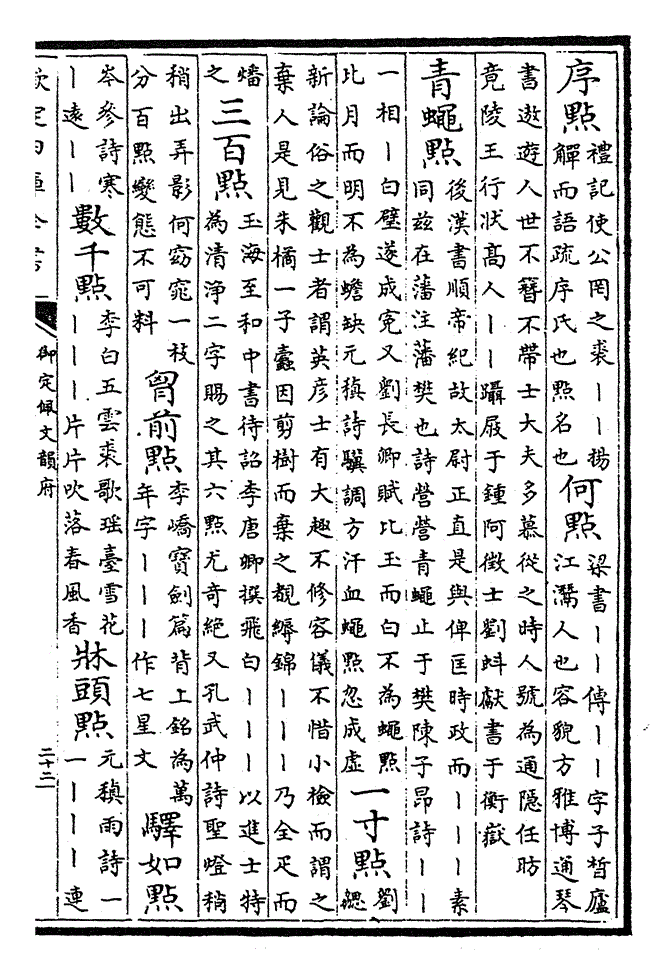 序點 禮記使公罔之裘丨丨揚
觶而語疏序氏也點名也
何點 梁書丨丨傳丨丨字子晳廬
江灊人也容貌方雅博通琴
書遨遊人世不簪不帶士大夫多慕從之時人號為通隱任昉
竟陵王行狀高人丨丨躡屐于鍾阿徵士劉虯獻書于衡嶽
青蠅點 後漢書順帝紀故太尉正直是與俾匡時政而丨丨丨素
同兹在藩注藩樊也詩營營青蠅止于樊陳子昂詩丨丨
一相丨白璧遂成寃又劉長卿賦比玉而白不為蠅點
比月而明不為蟾缺元稹詩驥調方汗血蠅點忽成虛
一寸點 劉
勰
新論俗之觀士者謂英彦士有大趣不修容儀不惜小檢而謂之
棄人是見朱橘一子蠹因剪樹而棄之覩縟錦丨丨丨乃全疋而
燔
之
三百點 玉海至和中書待詔李唐卿撰飛白丨丨丨以進士特
為清浄二字賜之其六點尤竒絶又孔武仲詩聖燈稍
稍出弄影何窈窕一枝
分百點變態不可料
胷前點 李嶠寶劍篇背上銘為萬
年字丨丨丨作七星文
驛如點
岑參詩寒
丨遠丨丨
數千點 李白五雲裘歌瑶臺雪花
丨丨丨片片吹落春風香
牀頭點 元稹雨詩一
一丨丨丨連
欽定四庫全書
御定佩文韻府
二十二